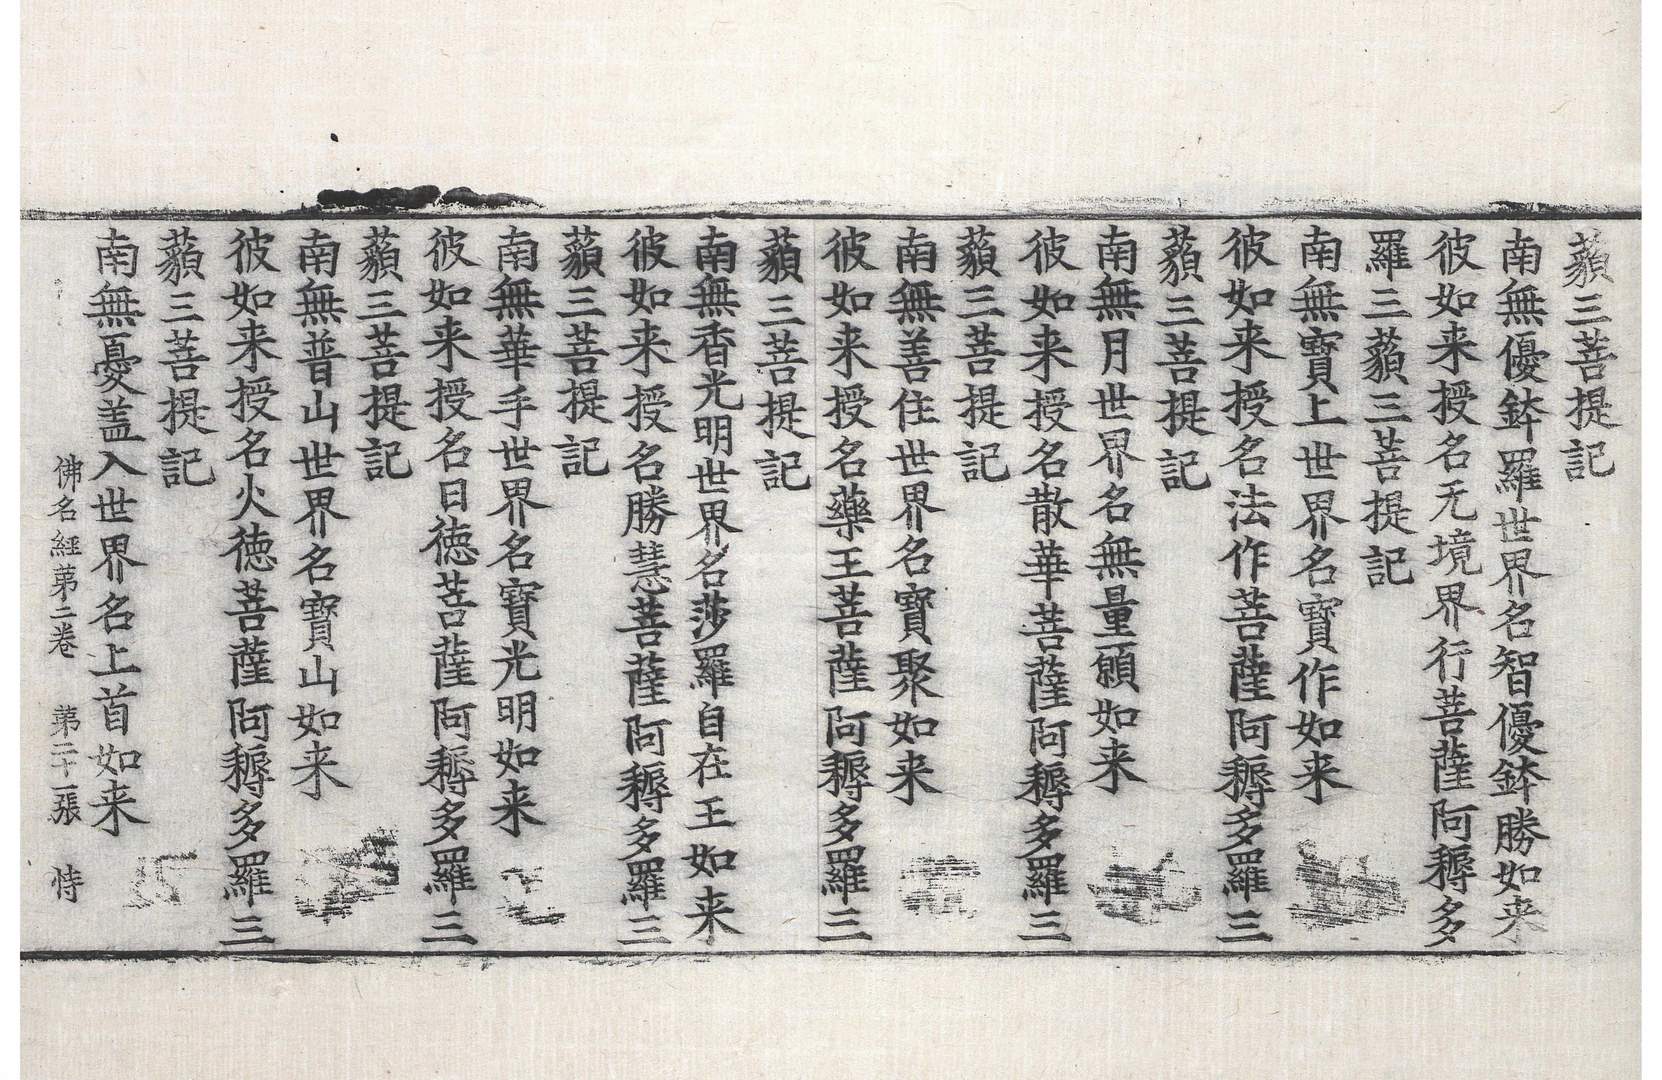 藐三菩提記
南無優鉢羅世界名智優鉢勝如来
彼如来授名无境界行菩薩阿耨多
羅三藐三菩提記
南無寶上世界名寶作如来
彼如来授名法作菩薩阿耨多羅三
藐三菩提記
南無月世界名無量願如来
彼如来授名散華菩薩阿耨多羅三
藐三菩提記
南無善住世界名寶聚如来
彼如来授名藥王菩薩阿耨多羅三
藐三菩提記
南無香光明世界名莎羅自在王如来
彼如来授名勝慧菩薩阿耨多羅三
藐三菩提記
南無華手世界名寶光明如来
彼如来授名日徳菩薩阿耨多羅三
藐三菩提記
南無普山世界名寶山如来
彼如来授名火徳菩薩阿耨多羅三
藐三菩提記
南無憂盖入世界名上首如来
佛名經苐二卷 苐二十一張 恃